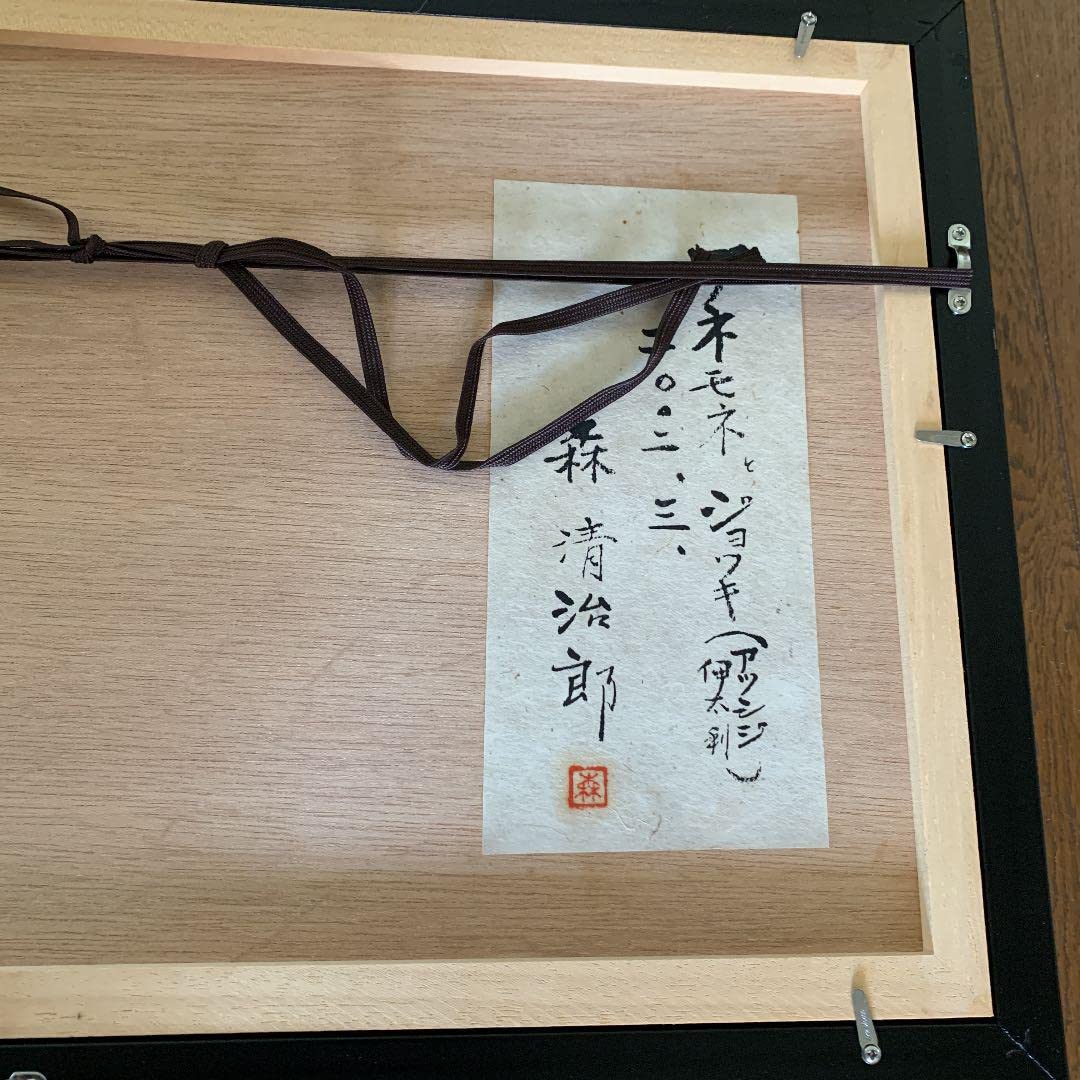 アネモネとジョッキ(アッシジ
伊太利)
二〇.二、三、
森 清治郎
森